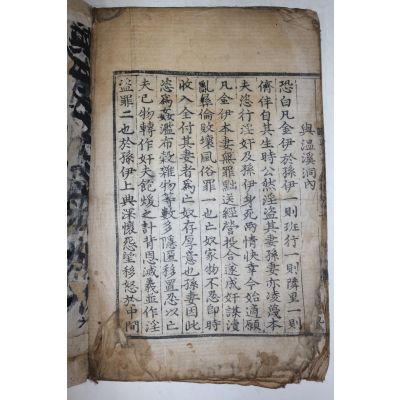 與溫溪洞內
恐白凡金伊於孫伊一則班行一則隣里一則
儕伴自其生時公然淫盜其妻孫妻亦凌蔑本
夫恣行淫奸及孫伊身死兩情快幸今始適願
凡金伊本妻無罪黜送經營投合遂成奸謀瀆
亂彜倫敗壞風俗罪一也亡奴家物不忍卽時
收入全付其妻者爲亡奴存厚意也孫妻因此
恣爲奸濫布穀雜物等數多隱匿移置忍以亡
夫已物轉作奸夫飽煖之計背恩滅義並作淫
盜罪二也於孫伊上典深懷怨望移怒於中間